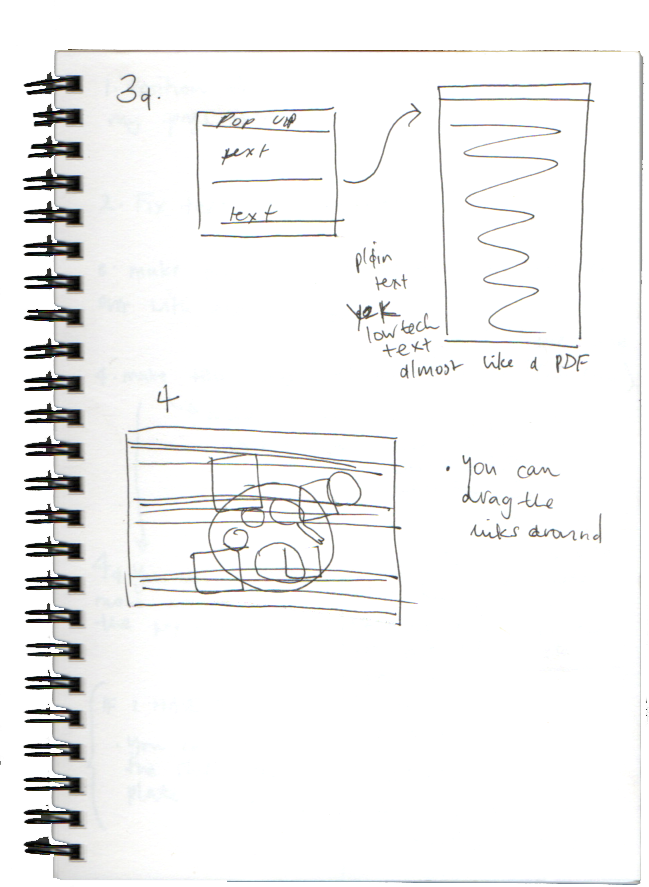 3a.
Pop up
text
text
plain
text
lowtech
text
almost like a PDF
4
• You can
drag the
links around